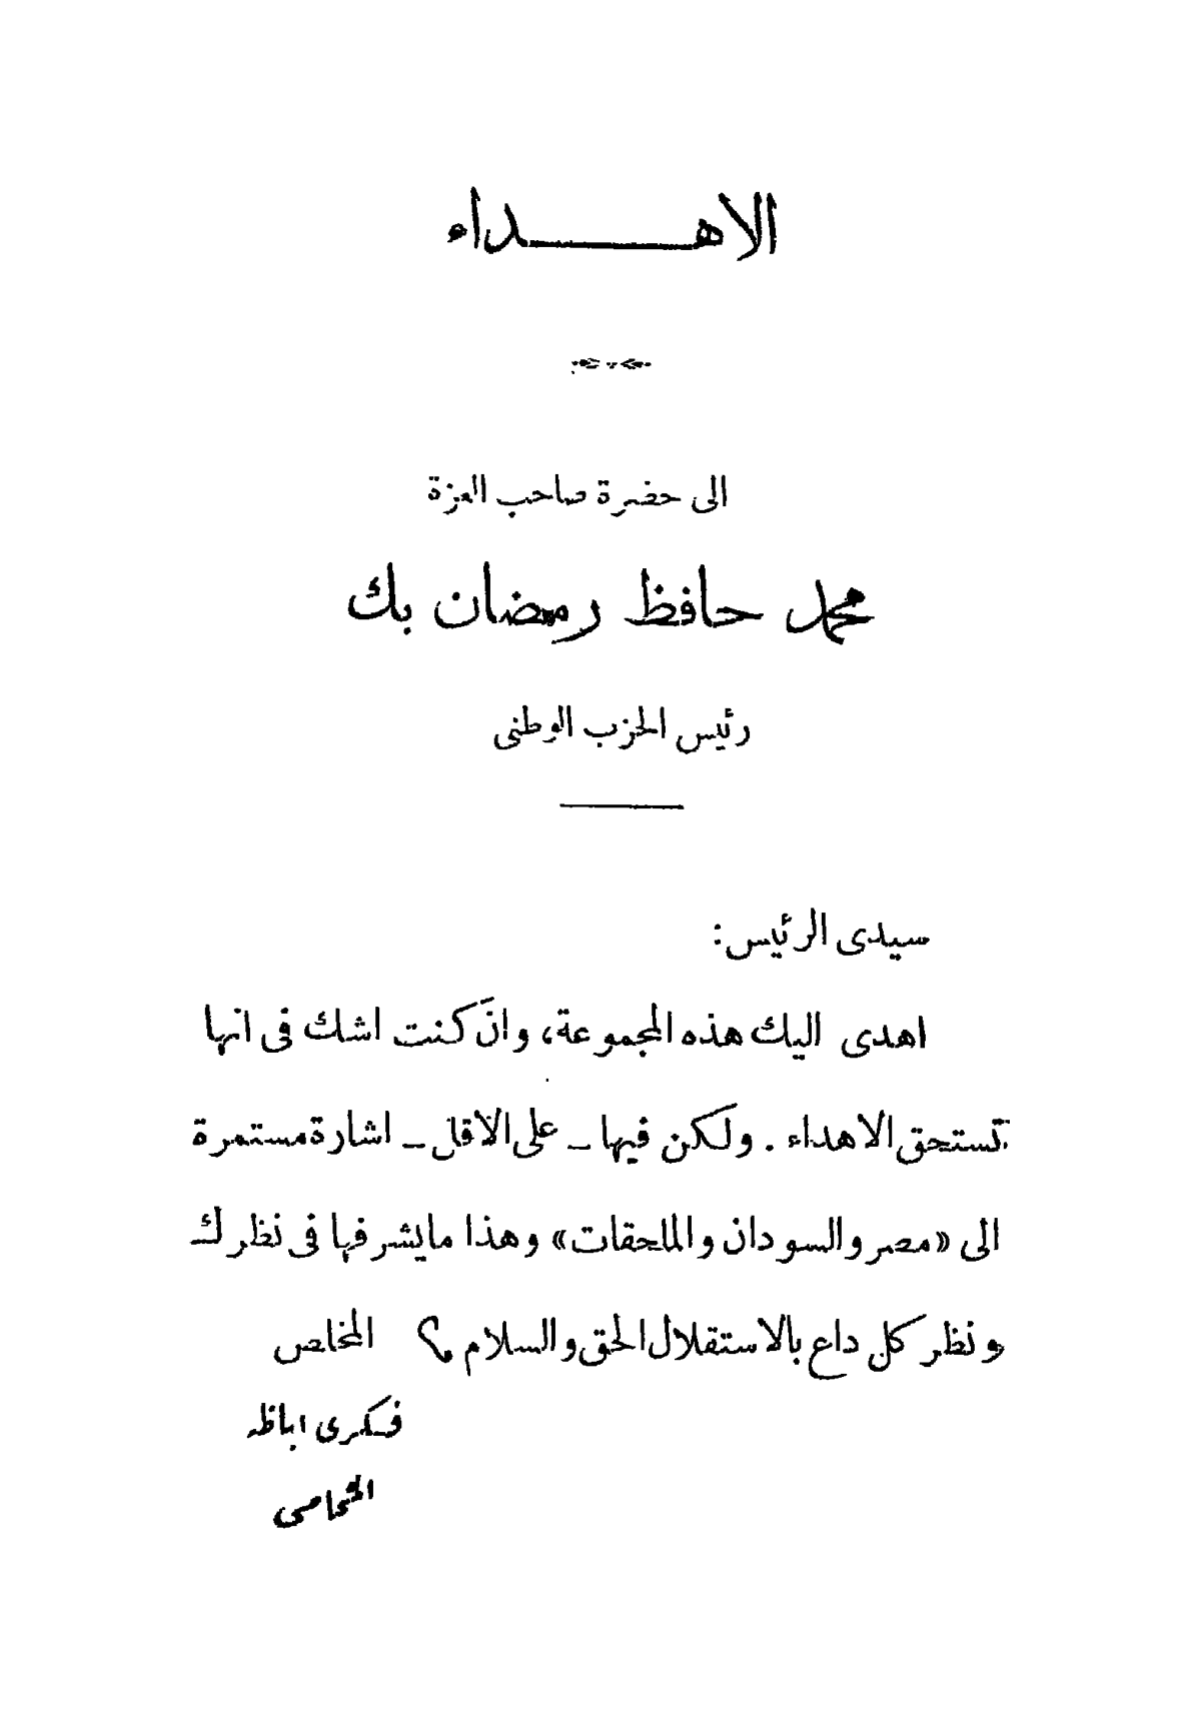 الاهداء
الى حضرة صاحب العزة
محمد حافظ رمضان بك
رئيس الحزب الوطنى
سيدى الرئيس:
اهدى اليك هذه المجموعة، وان كنت اشك فى انها
تستحق الاهداء . ولكن فيها ــ على الاقل ــ اشارة مستمرة
الى «مصر والسودان والملحقات» وهذا مايشرفها فى نظرك
ونظر كل داع بالاستقلال الحق والسلام؟ المخلص
فكرى اباظه
المحامى